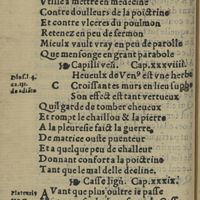 Vtille a mettre en medecine
Contre douleurs de la poictrine
Et contre vlceres du poulmon
Retenez en peu de sermon
Mieulx vault vray en peu de parolle
Que mensonge en grant parabole
Capilli veñ. Cap.xxxviii.
Heueulx de Ven⁹ est vne herbe
C Croissantes murs en lieu
Son effect est tant vertueux
Quil garde de tomber cheueux
Et rompt le chaillou & la pierre
A la pleuresie faict la guerre,
De matrice ouste puenteur
Et a quelque peu de challeur
Donnant confort a la poictrine
Tant que le mal delle decline.
Casse lign. Cap.xxxix.
Platearius
AVant que plus oultre ie passe